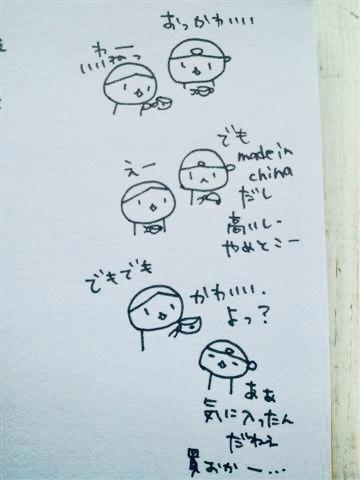 おっかわいい
わー
いいねっ
でも
made in
china
だし
高いしー
やめとこー
えー
でもでも
かわいい
よっ?
ああ
気に入ったん
だねえ
買おかー…